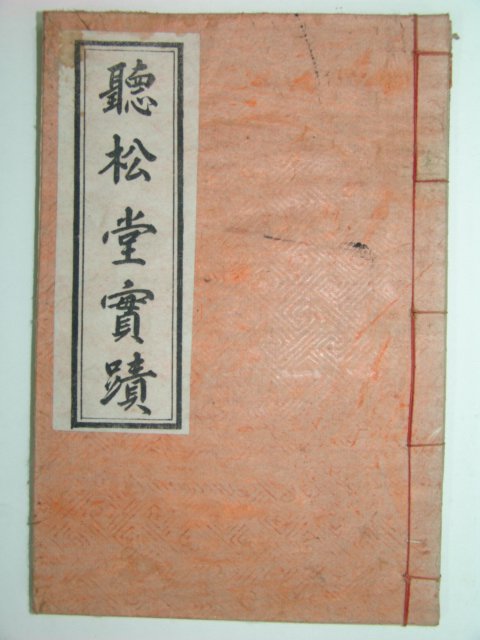 聽松堂實蹟